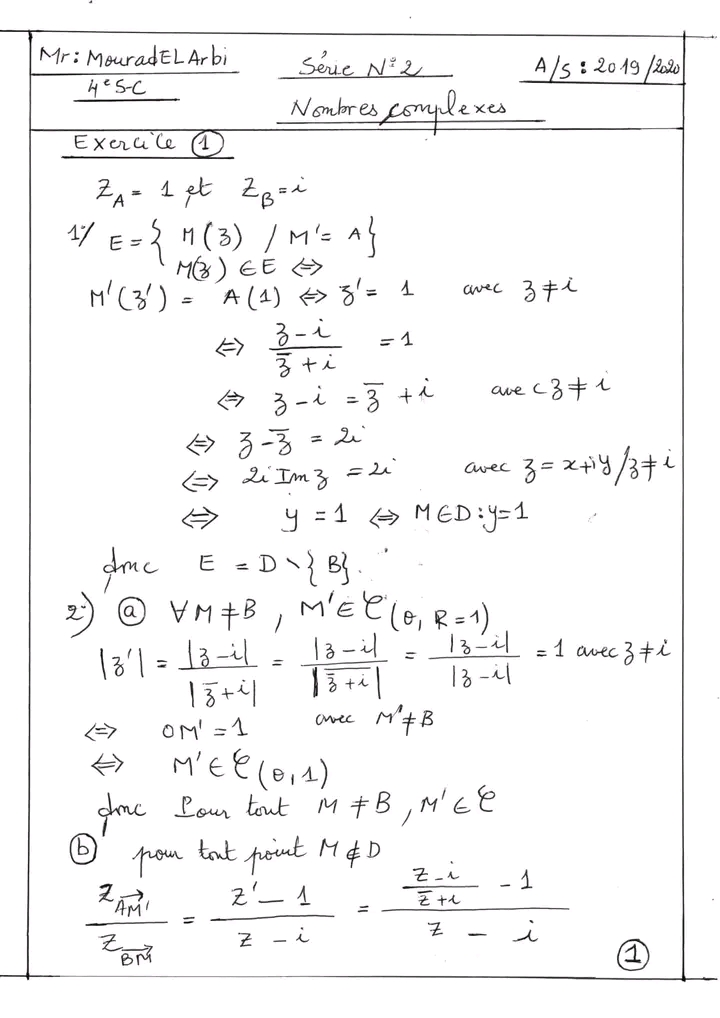 Mr: Mourad EL Arbi
4e S-C
Série N°2
Nombres complexes
A/S : 2019/2020
Exercice ①
Z_A = 1 et Z_B = i
1°/ E = { M(z) / M' = A }
M(z) ∈ E ⇔
M'(z') = A(1) ⇔ z' = 1 avec z ≠ i
⇔ (z - i)/(z̄ + i) = 1
⇔ z - i = z̄ + i avec z ≠ i
⇔ z - z̄ = 2i
⇔ 2i Im z = 2i avec z = x+iy / z ≠ i
⇔ y = 1 ⇔ M ∈ D : y = 1
donc E = D \ {B}.
2°) ⓐ ∀ M ≠ B , M' ∈ C(O, R = 1)
|z'| = |z - i|/|z̄ + i| = |z - i|/|z̄ + i|‾ = |z - i|/|z - i| = 1 avec z ≠ i
⇔ OM' = 1 avec M' ≠ B
⇔ M' ∈ C(O, 1)
donc Pour tout M ≠ B , M' ∈ C
ⓑ pour tout point M ∉ D
Z_AM'→ / Z_BM→ = (z' - 1)/(z - i) = ((z - i)/(z̄ + i) - 1)/(z - i)
①